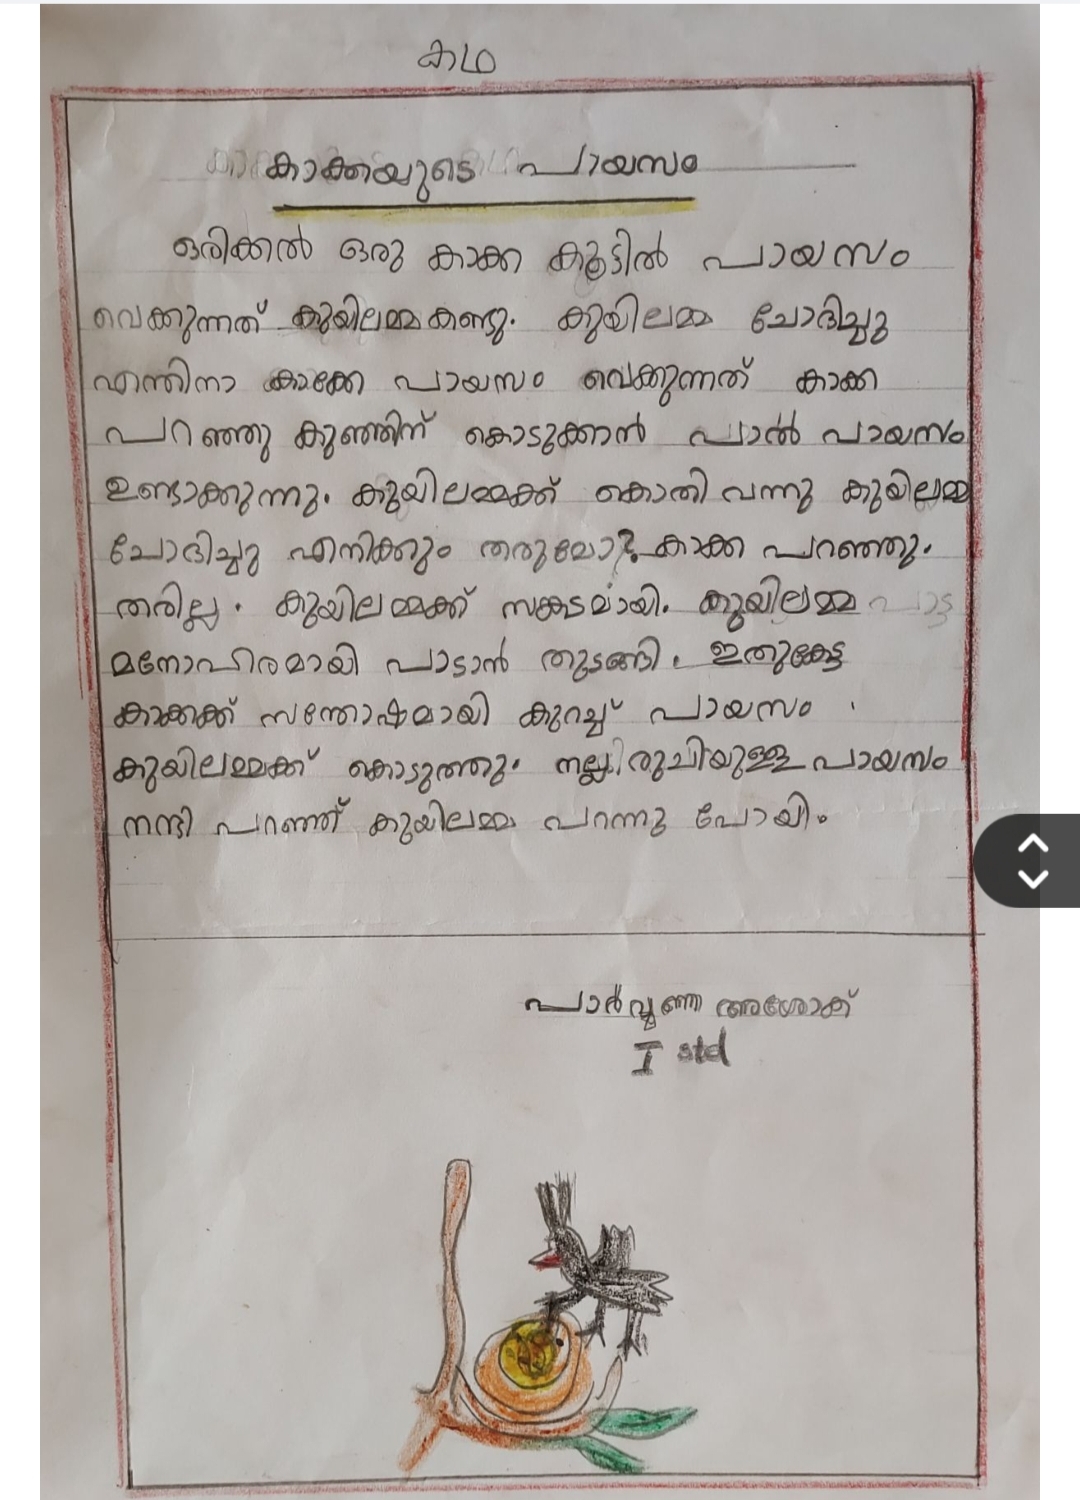 കഥ
കാക്കയുടെ പായസം
ഒരിക്കൽ ഒരു കാക്ക കൂട്ടിൽ പായസം
വെക്കുന്നത് കുയിലമ്മ കണ്ടു. കുയിലമ്മ ചോദിച്ചു
എന്തിനാ കാക്കേ പായസം വെക്കുന്നത് കാക്ക
പറഞ്ഞു കുഞ്ഞിന് കൊടുക്കാൻ പാൽ പായസം
ഉണ്ടാക്കുന്നു. കുയിലമ്മക്ക് കൊതി വന്നു കുയിലമ്മ
ചോദിച്ചു എനിക്കും തരുമോ? കാക്ക പറഞ്ഞു.
തരില്ല. കുയിലമ്മക്ക് സങ്കടമായി. കുയിലമ്മ
മനോഹരമായി പാടാൻ തുടങ്ങി. ഇതുകേട്ട
കാക്കക്ക് സന്തോഷമായി കുറച്ച് പായസം
കുയിലമ്മക്ക് കൊടുത്തു. നല്ല രുചിയുള്ള പായസം
നന്ദി പറഞ്ഞ് കുയിലമ്മ പറന്നു പോയി.
അശോക്
I std